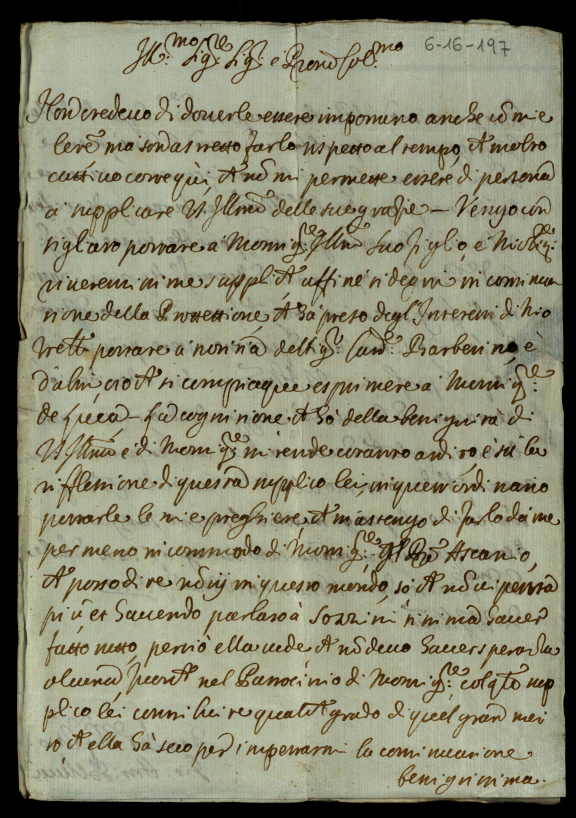 Ill.mo Sig.re Sig.r e Pron Col.mo
6-16-197
Non credevo di doverle essere importuno anche con mie
lere ma son astretto farlo rispetto al tempo, che molto
cattivo corre qui, che non mi permette essere di persona
a supplicare VS Illma delle sue grazie – Vengo con
sigliato portare a Monsig.re Illmo suo Figlio e
riverentissime suppl che affine si degni in continua
zione della Protettione che ha preso degl'Interessi di Nio
portare a notitia del Sig.r Card. Barberino, e
d'altri ciò che si compiacque esprimere a Monsig.re
de Luca – La cognitione che ho della benignità di
VS Illma e di Monsig.re mi rende cotanto ardito e su la
riflessione di questa supplico lei, in quest'ordinario
portarle le mie preghiere che m'astengo di farlo da me
per meno incommodo di Monsig.re Ascanio,
che posso dire non in questo mondo, so che non ci pensa
più et havendo parlato à Sozzini si stima haver
fatto tutto, perciò ella vede che non devo haver speranza
alcuna fuorche nel Patrocinio di Monsig.re col q.to sup
plico lei contribuire qualche grado di quel gran meri
to che ella ha seco per impetrarmi la continuatione
benignissima.